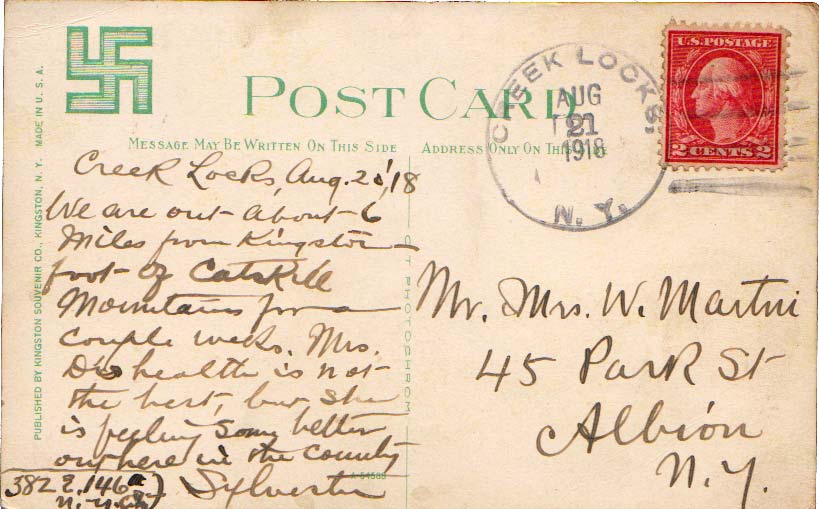 POST CARD
MESSAGE MAY BE WRITTEN ON THIS SIDE
ADDRESS ONLY ON THIS SIDE
CREEK LOCKS,
AUG
21
1918
N. Y.
U.S. POSTAGE
2 CENTS 2
PUBLISHED BY KINGSTON SOUVENIR CO., KINGSTON, N. Y. MADE IN U. S. A.
Creek Locks, Aug. 20, '18
We are out about 6
Miles from Kingston
foot of Catskill
Mountains for a
couple weeks. Mrs.
D's health is not
the best, but she
is feeling some better
out here in the country
Sylvester
382 E. 146
N.Y. City
CT PHOTOCHROM
A-54589
Mr. Mrs. W. Martin
45 Park St
Albion
N.Y.